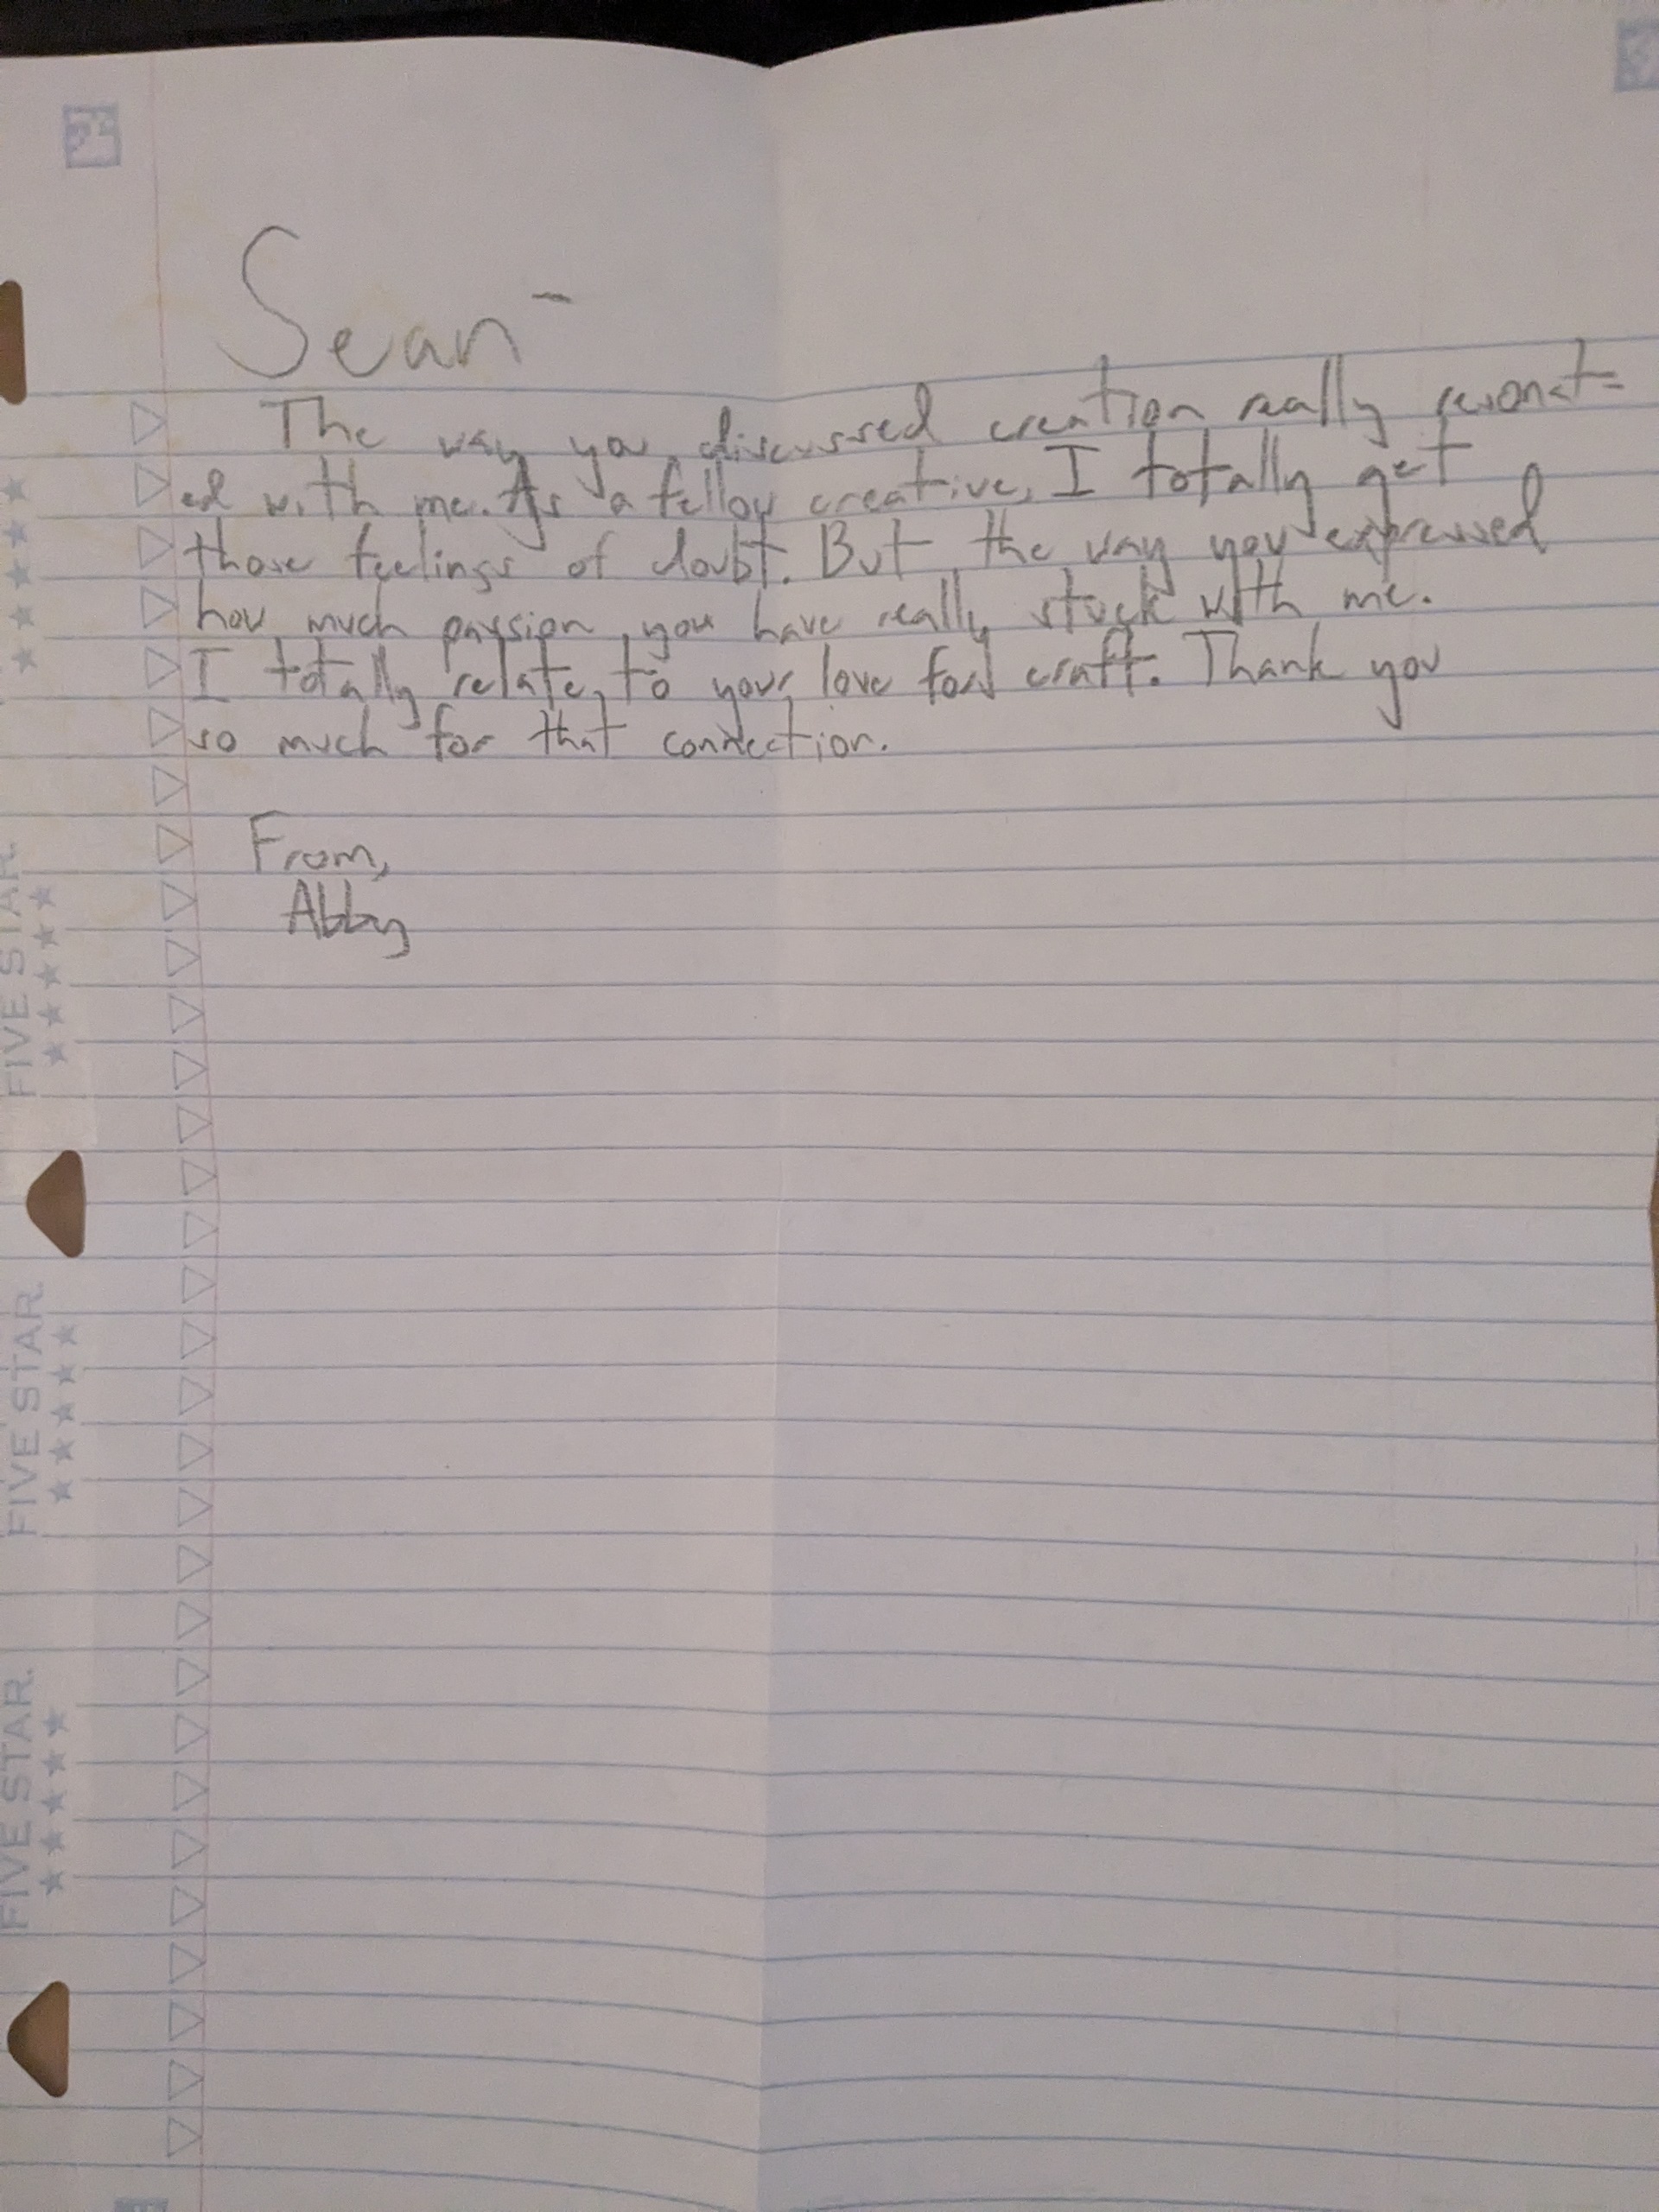 Sean-
The way you discussed creation really resonat=
ed with me. As a fellow creative, I totally get
those feelings of doubt. But the way you expressed
how much passion you have really stuck with me.
I totally relate to your love for craft. Thank you
so much for that connection.
From,
Abby
FIVE STAR.
FIVE STAR.
FIVE STAR.